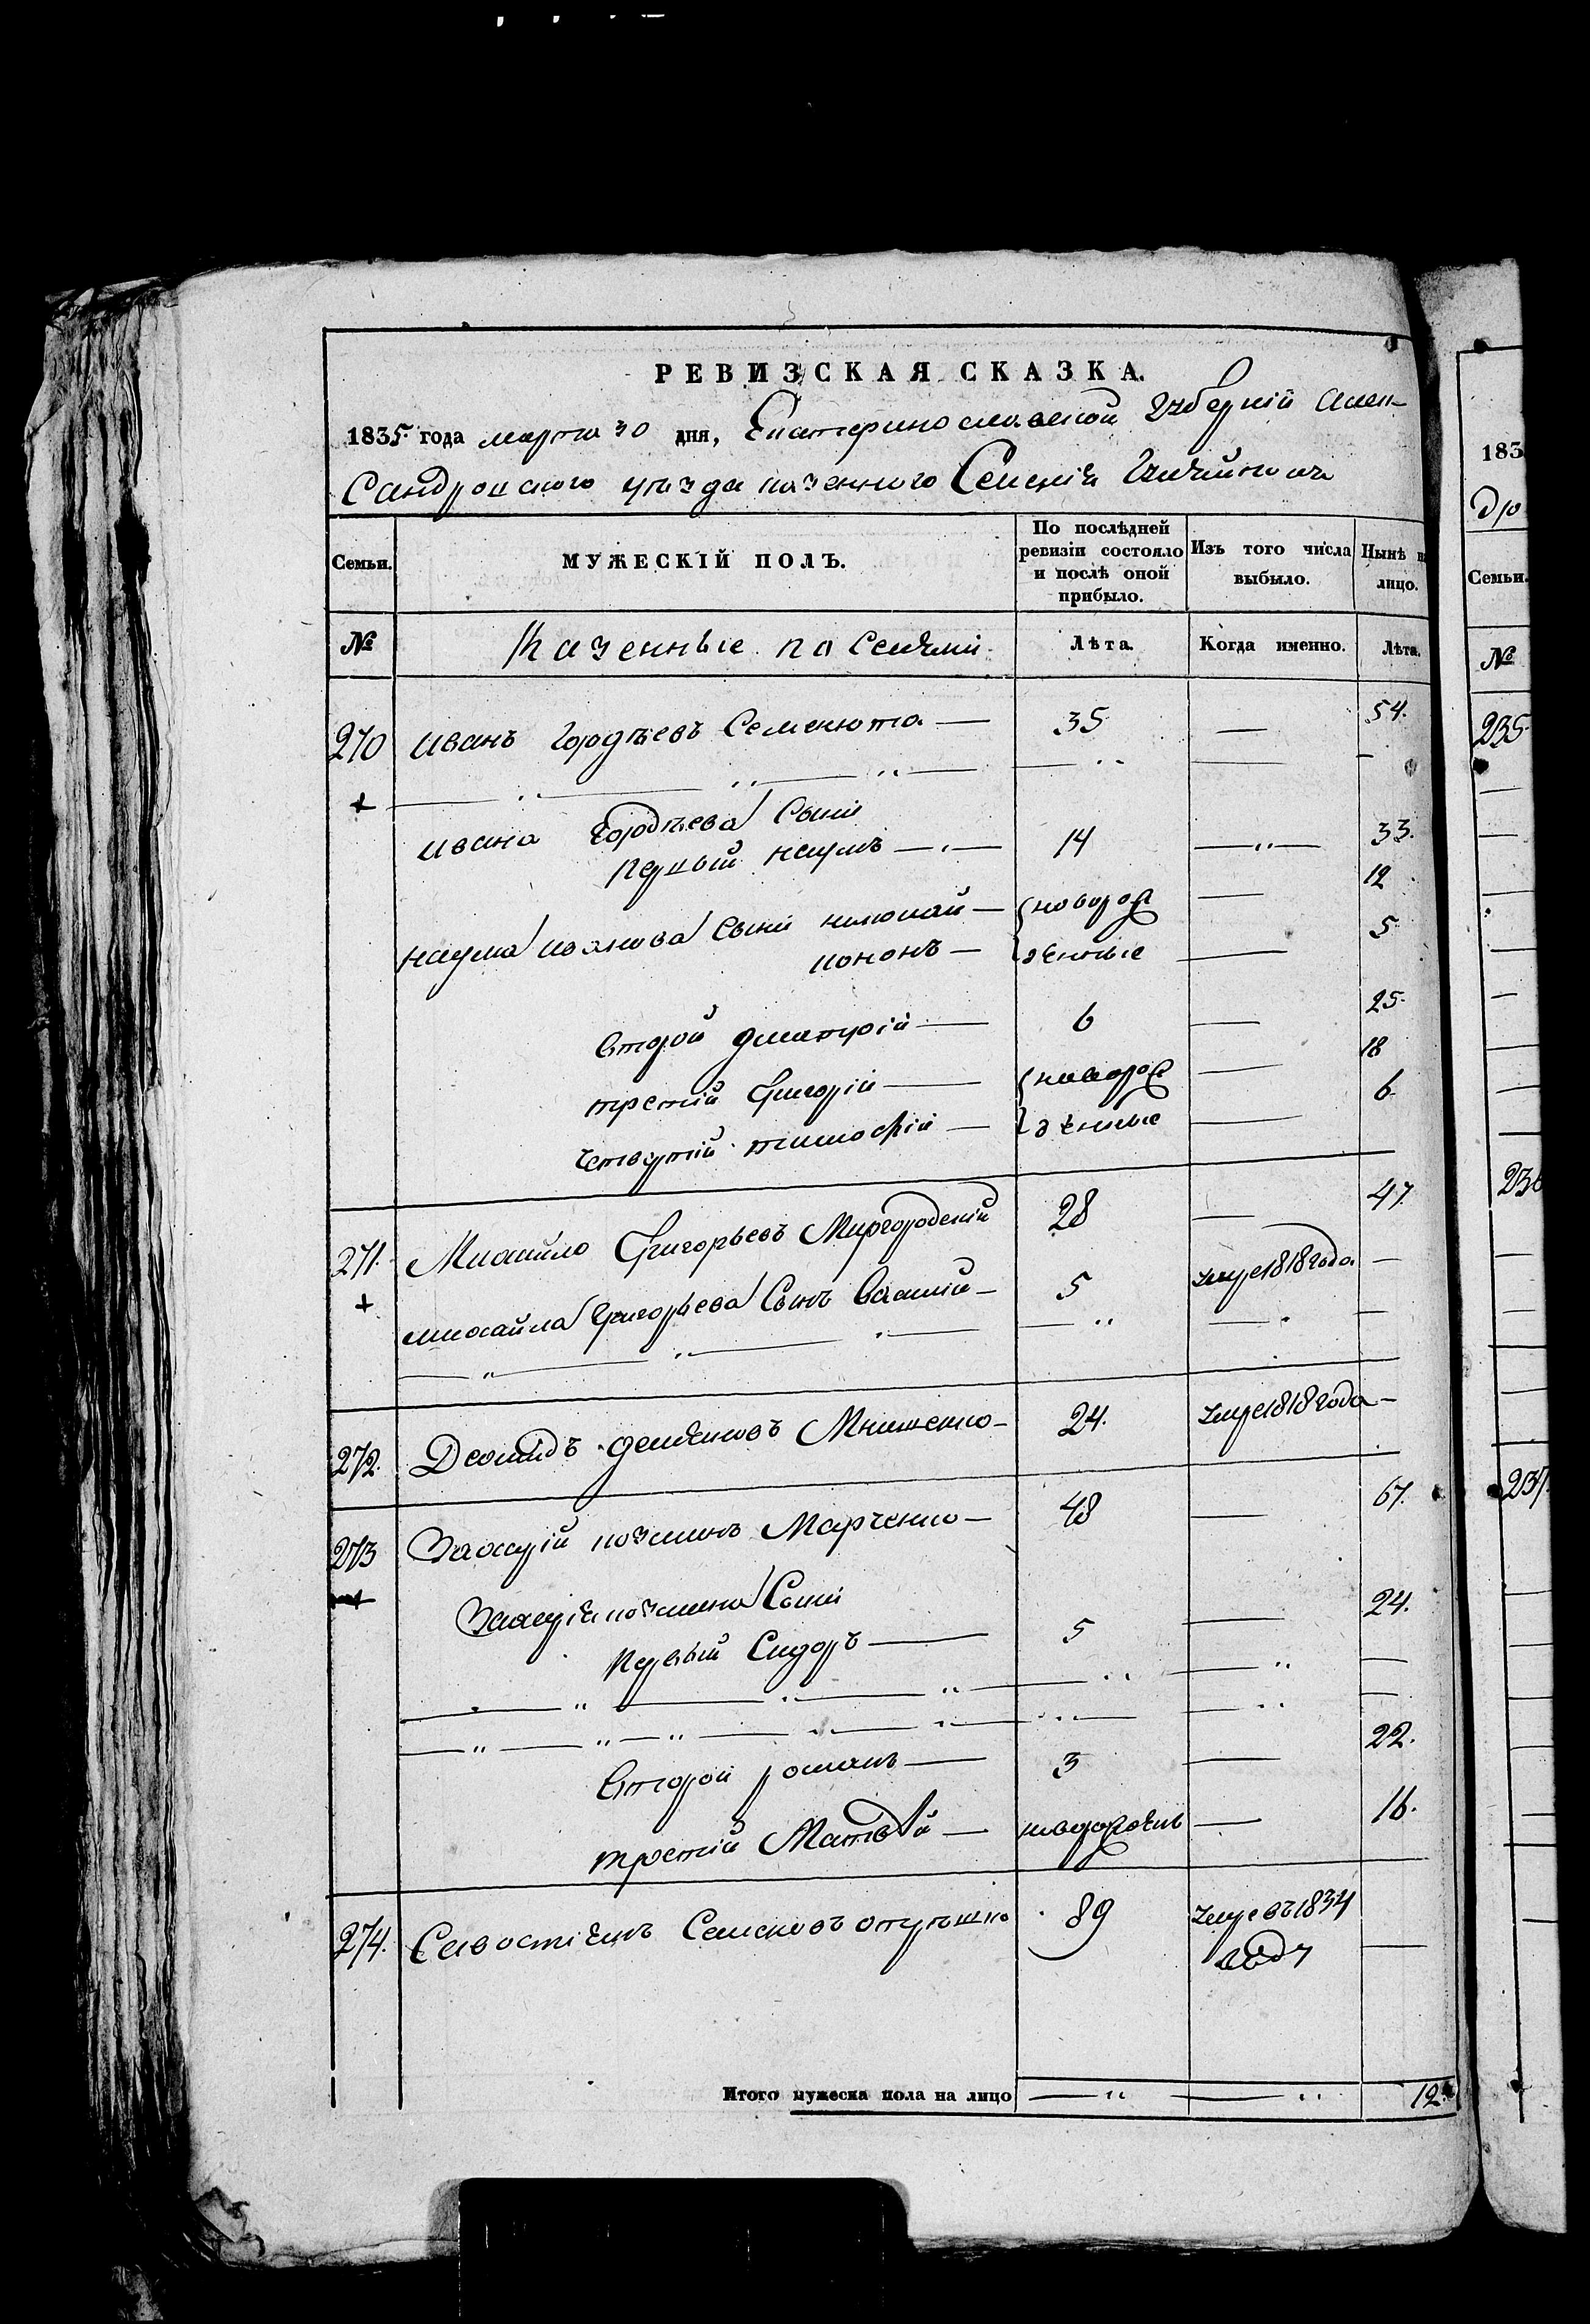 РЕВИЗСКАЯ СКАЗКА.
1835 года марта 30 дня, Екатеринославской Губерній Алек-
сандровского уезда казенного Селенія
Семьи. МУЖЕСКІЙ ПОЛЪ. По послѣдней ревизіи состояло и послѣ оной прибыло. Изъ того числа выбыло. Нынѣ на лицо.
№ Казенные поселяни Лѣта. Когда именно. Лѣта.
270 Иванъ Гордѣевъ Семенюта — 35 — 54.
Ивана Гордѣева Сыни
первый наумъ — 14 — 33.
наума Иванова Сыни николай — новорож — 12
кононъ — денные — 5
второй дмитрій — 6 — 25.
третій Григорій — новорож — 18
четвертій тимофій — денные — 6
271. Михайло Григорьевъ Миргородскій 28 — 47.
михайла Григорьева Сынъ Василий — 5 умре 1818 года —
272. Деомидъ демяновъ Мнишенко — 24. умре 1818 года —
273 Захарій козминъ Марченко — 48 — 67.
Захарія козмина Сыни
первый Сидоръ — 5 — 24.
второй романъ — 3 — 22.
третій Матвѣй — новорожден — 16.
274. Севостіянъ Семеновъ 89 умре въ 1834 —
году
Итого мужеска пола на лицо 12
183
Дро
Семьи.
№
235
236
237.